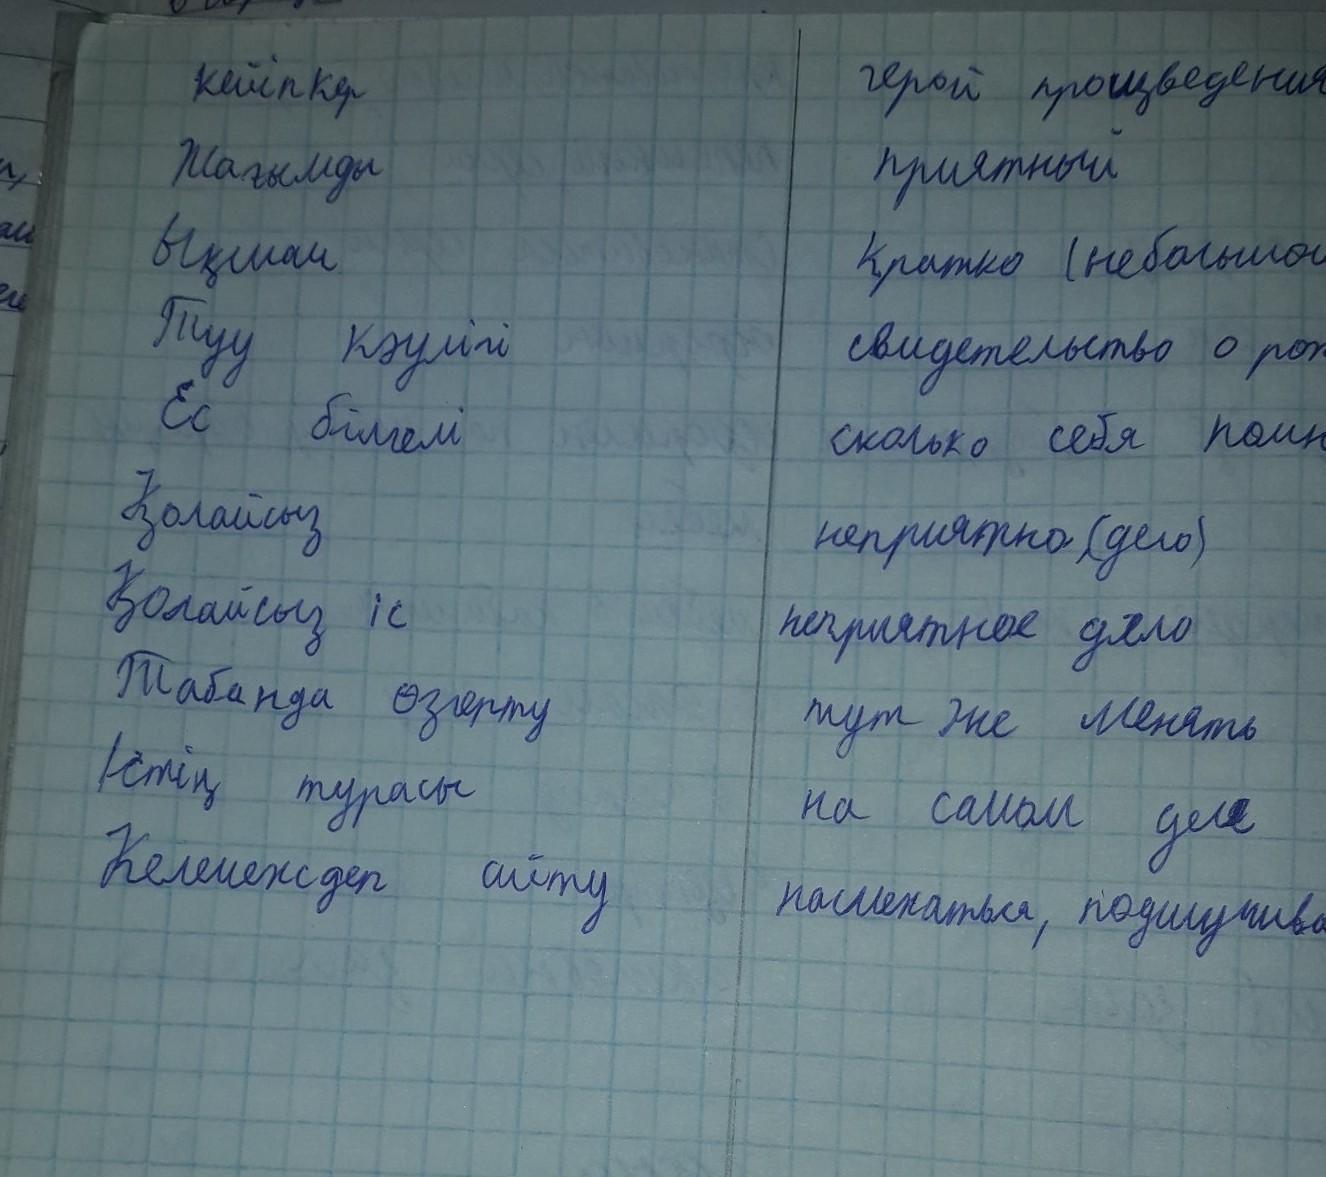 кейіпкер герой произведения
Жағымды приятный
Ықшам Кратко (небольшой
Туу куәлігі свидетельство о рож
Ес білгелі сколько себя помн
Қолайсыз неприятно (дело)
Қолайсыз іс неприятное дело
Табанда өзгерту тут же менять
Істің турасы на самом деле
Келемеждеп айту насмехаться, подшучива